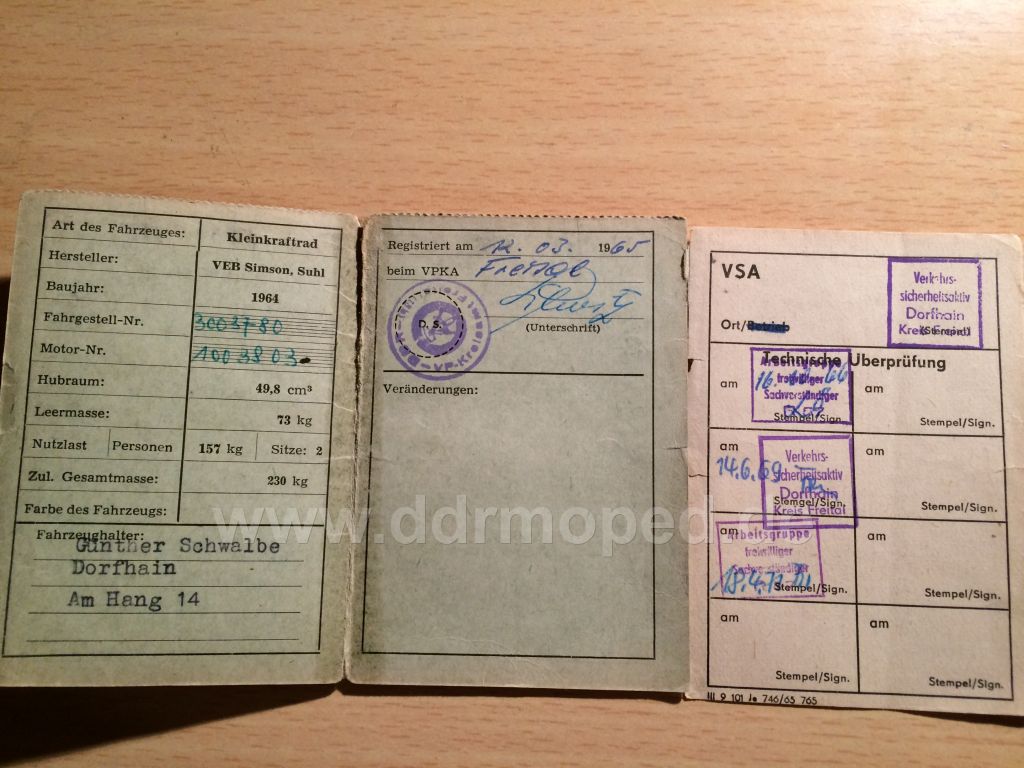 Art des Fahrzeuges: Kleinkraftrad
Hersteller: VEB Simson, Suhl
Baujahr: 1964
Fahrgestell-Nr. 3003780
Motor-Nr. 1003803
Hubraum: 49,8 cm³
Leermasse: 73 kg
Nutzlast Personen 157 kg Sitze: 2
Zul. Gesamtmasse: 230 kg
Farbe des Fahrzeugs:
Fahrzeughalter:
Günther Schwalbe
Dorfhain
Am Hang 14
Registriert am 12. 03. 1965
beim VPKA Freital
(Unterschrift)
D. S.
Veränderungen:
VSA
Verkehrs-
sicherheitsaktiv
Dorfhain
Kreis Freital
(Stempel)
Ort/Betrieb
Technische Überprüfung
am
Arbeitsgruppe
freiwilliger
Sachverständiger
Stempel/Sign.
am
Stempel/Sign.
am
14.6.69
Verkehrs-
sicherheitsaktiv
Dorfhain
Kreis Freital
Stempel/Sign.
am
Stempel/Sign.
am
Arbeitsgruppe
freiwilliger
Sachverständiger
18.4.71
Stempel/Sign.
am
Stempel/Sign.
am
Stempel/Sign.
am
Stempel/Sign.
III 9 101 Je 746/65 765
www.ddrmoped.de